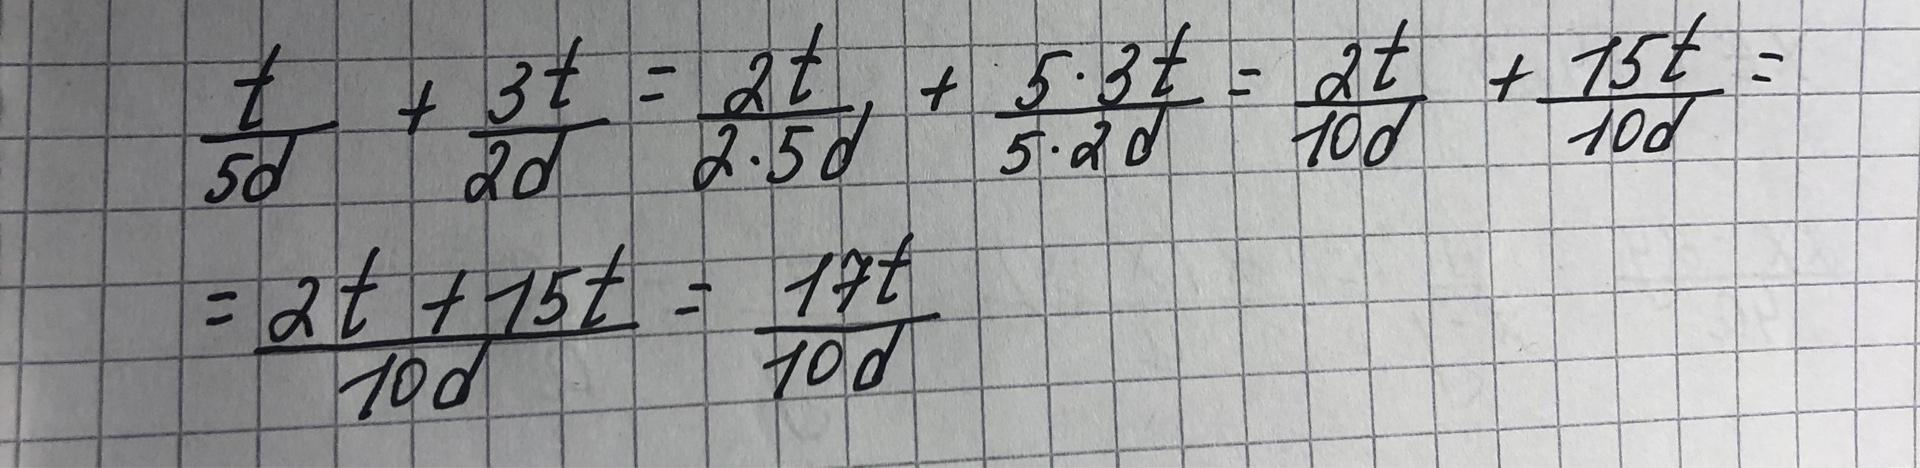 t/5d + 3t/2d = 2t/2·5d + 5·3t/5·2d = 2t/10d + 15t/10d =
= 2t + 15t/10d = 17t/10d